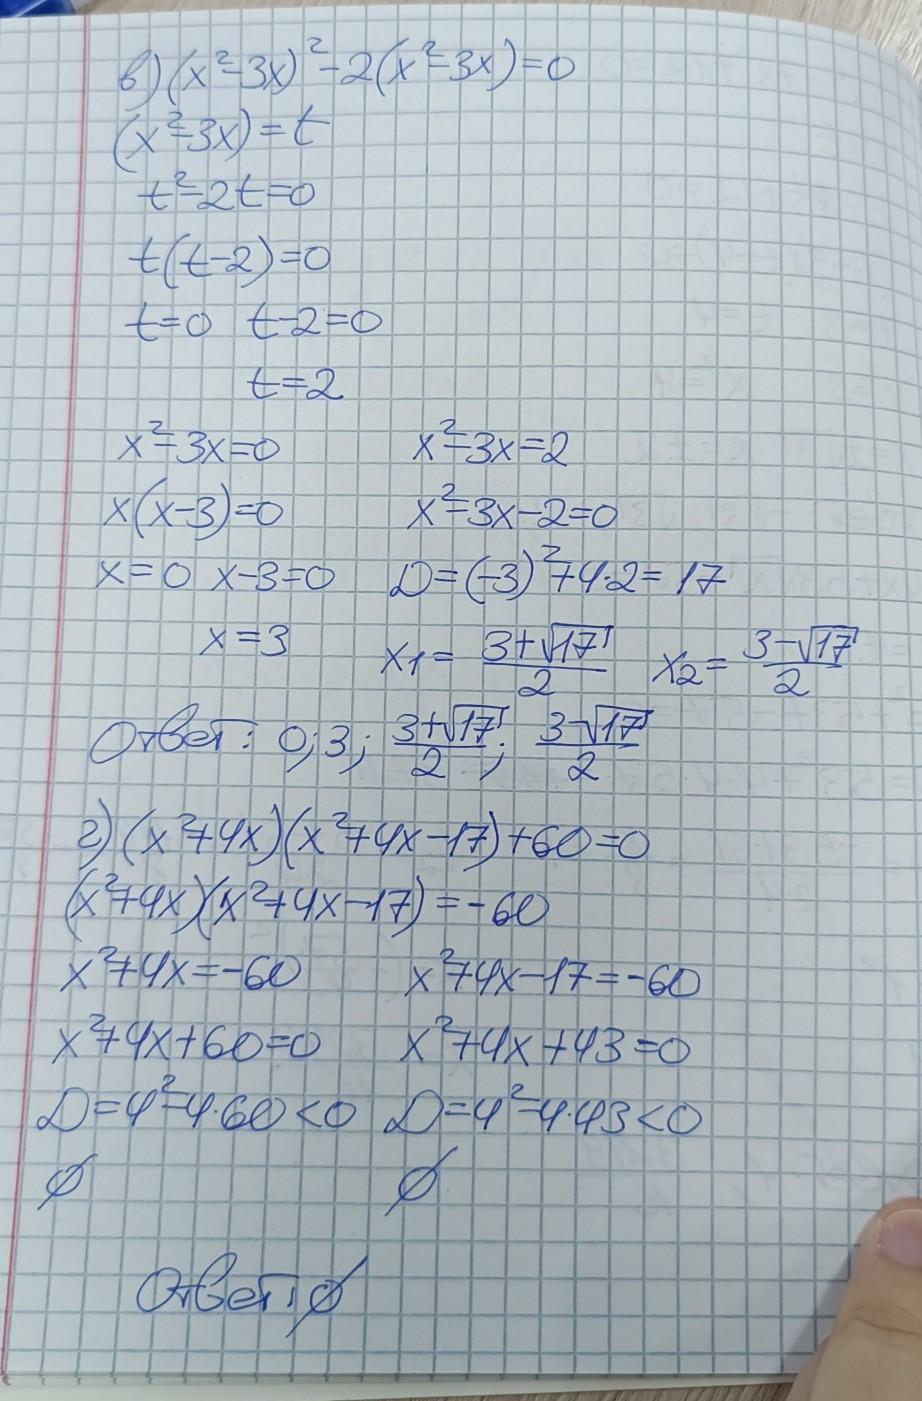 в) (x²-3x)²-2(x²-3x)=0
(x²-3x)=t
t²-2t=0
t(t-2)=0
t=0 t-2=0
t=2
x²-3x=0 x²-3x=2
x(x-3)=0 x²-3x-2=0
x=0 x-3=0 D=(-3)²+4·2=17
x=3 x₁=(3+√17)/2 x₂=(3-√17)/2
Ответ: 0; 3; (3+√17)/2; (3-√17)/2
г) (x²+4x)(x²+4x-17)+60=0
(x²+4x)(x²+4x-17)=-60
x²+4x=-60 x²+4x-17=-60
x²+4x+60=0 x²+4x+43=0
D=4²-4·60<0 D=4²-4·43<0
∅ ∅
Ответ: ∅